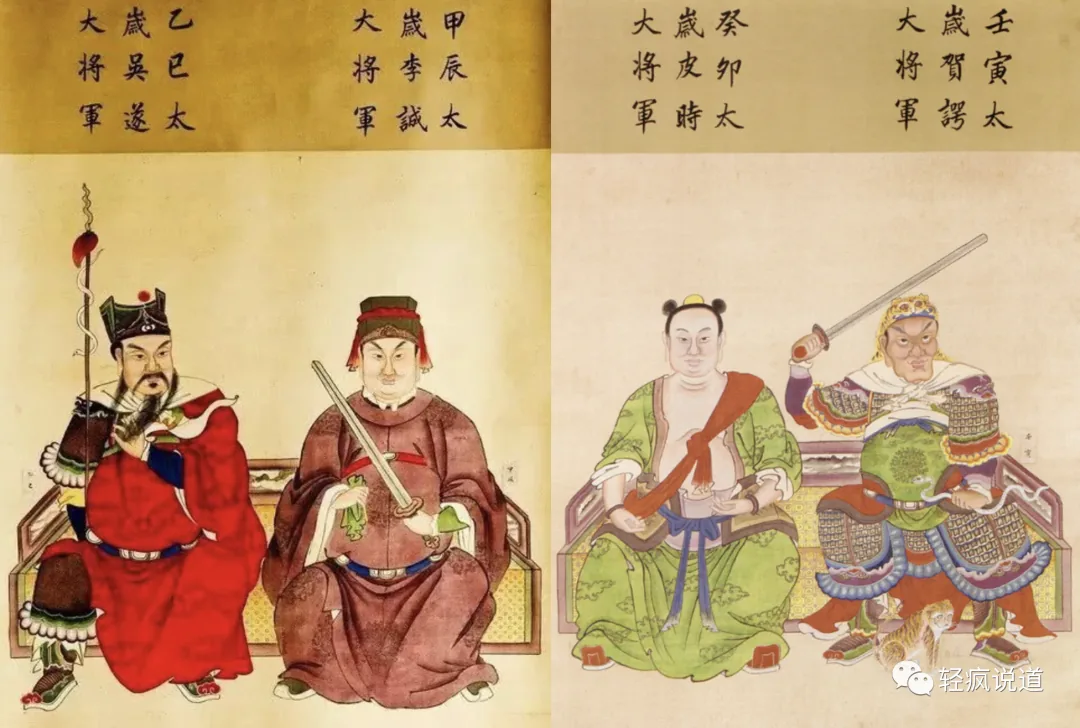 壬寅太
嵗賀諤
大将軍
癸卯太
嵗皮時
大将軍
甲辰太
嵗李誠
大将軍
乙巳太
嵗吳遂
大将軍
壬寅
轻疯说道